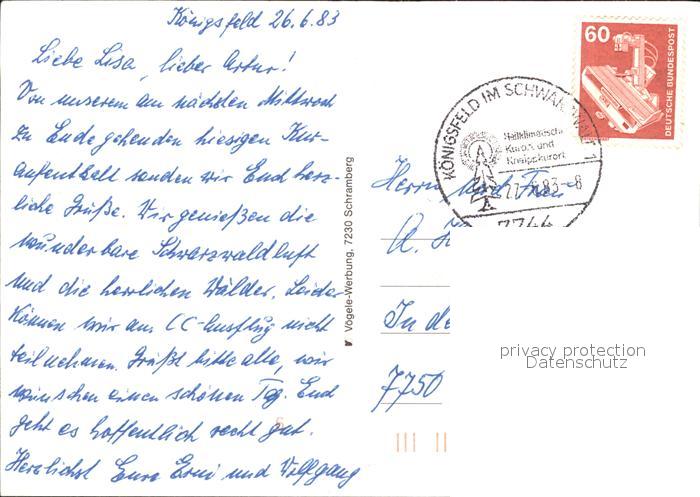 Königsfeld 26.6.83
Liebe Lisa, lieber Artur!
Von unserem am nächsten Mittwoch
zu Ende gehenden hiesigen Kur-
aufenthalt senden wir Euch herz-
liche Grüße. Wir genießen die
wunderbare Schwarzwaldluft
und die herrlichen Wälder. Leider
können wir am CC-Ausflug nicht
teilnehmen. Grüßt bitte alle, wir
wünschen einen schönen Tag. Euch
geht es hoffentlich recht gut.
Herzlichst Eure Erni und Wolfgang
Vögele-Werbung, 7230 Schramberg
60
DEUTSCHE BUNDESPOST
KÖNIGSFELD IM SCHWARZWALD 1
Heilklimatisch
Kurort und
Kneippkurort
27.6.83-8
7744
Herrn und Frau
A.
In de
7750
privacy protection
Datenschutz